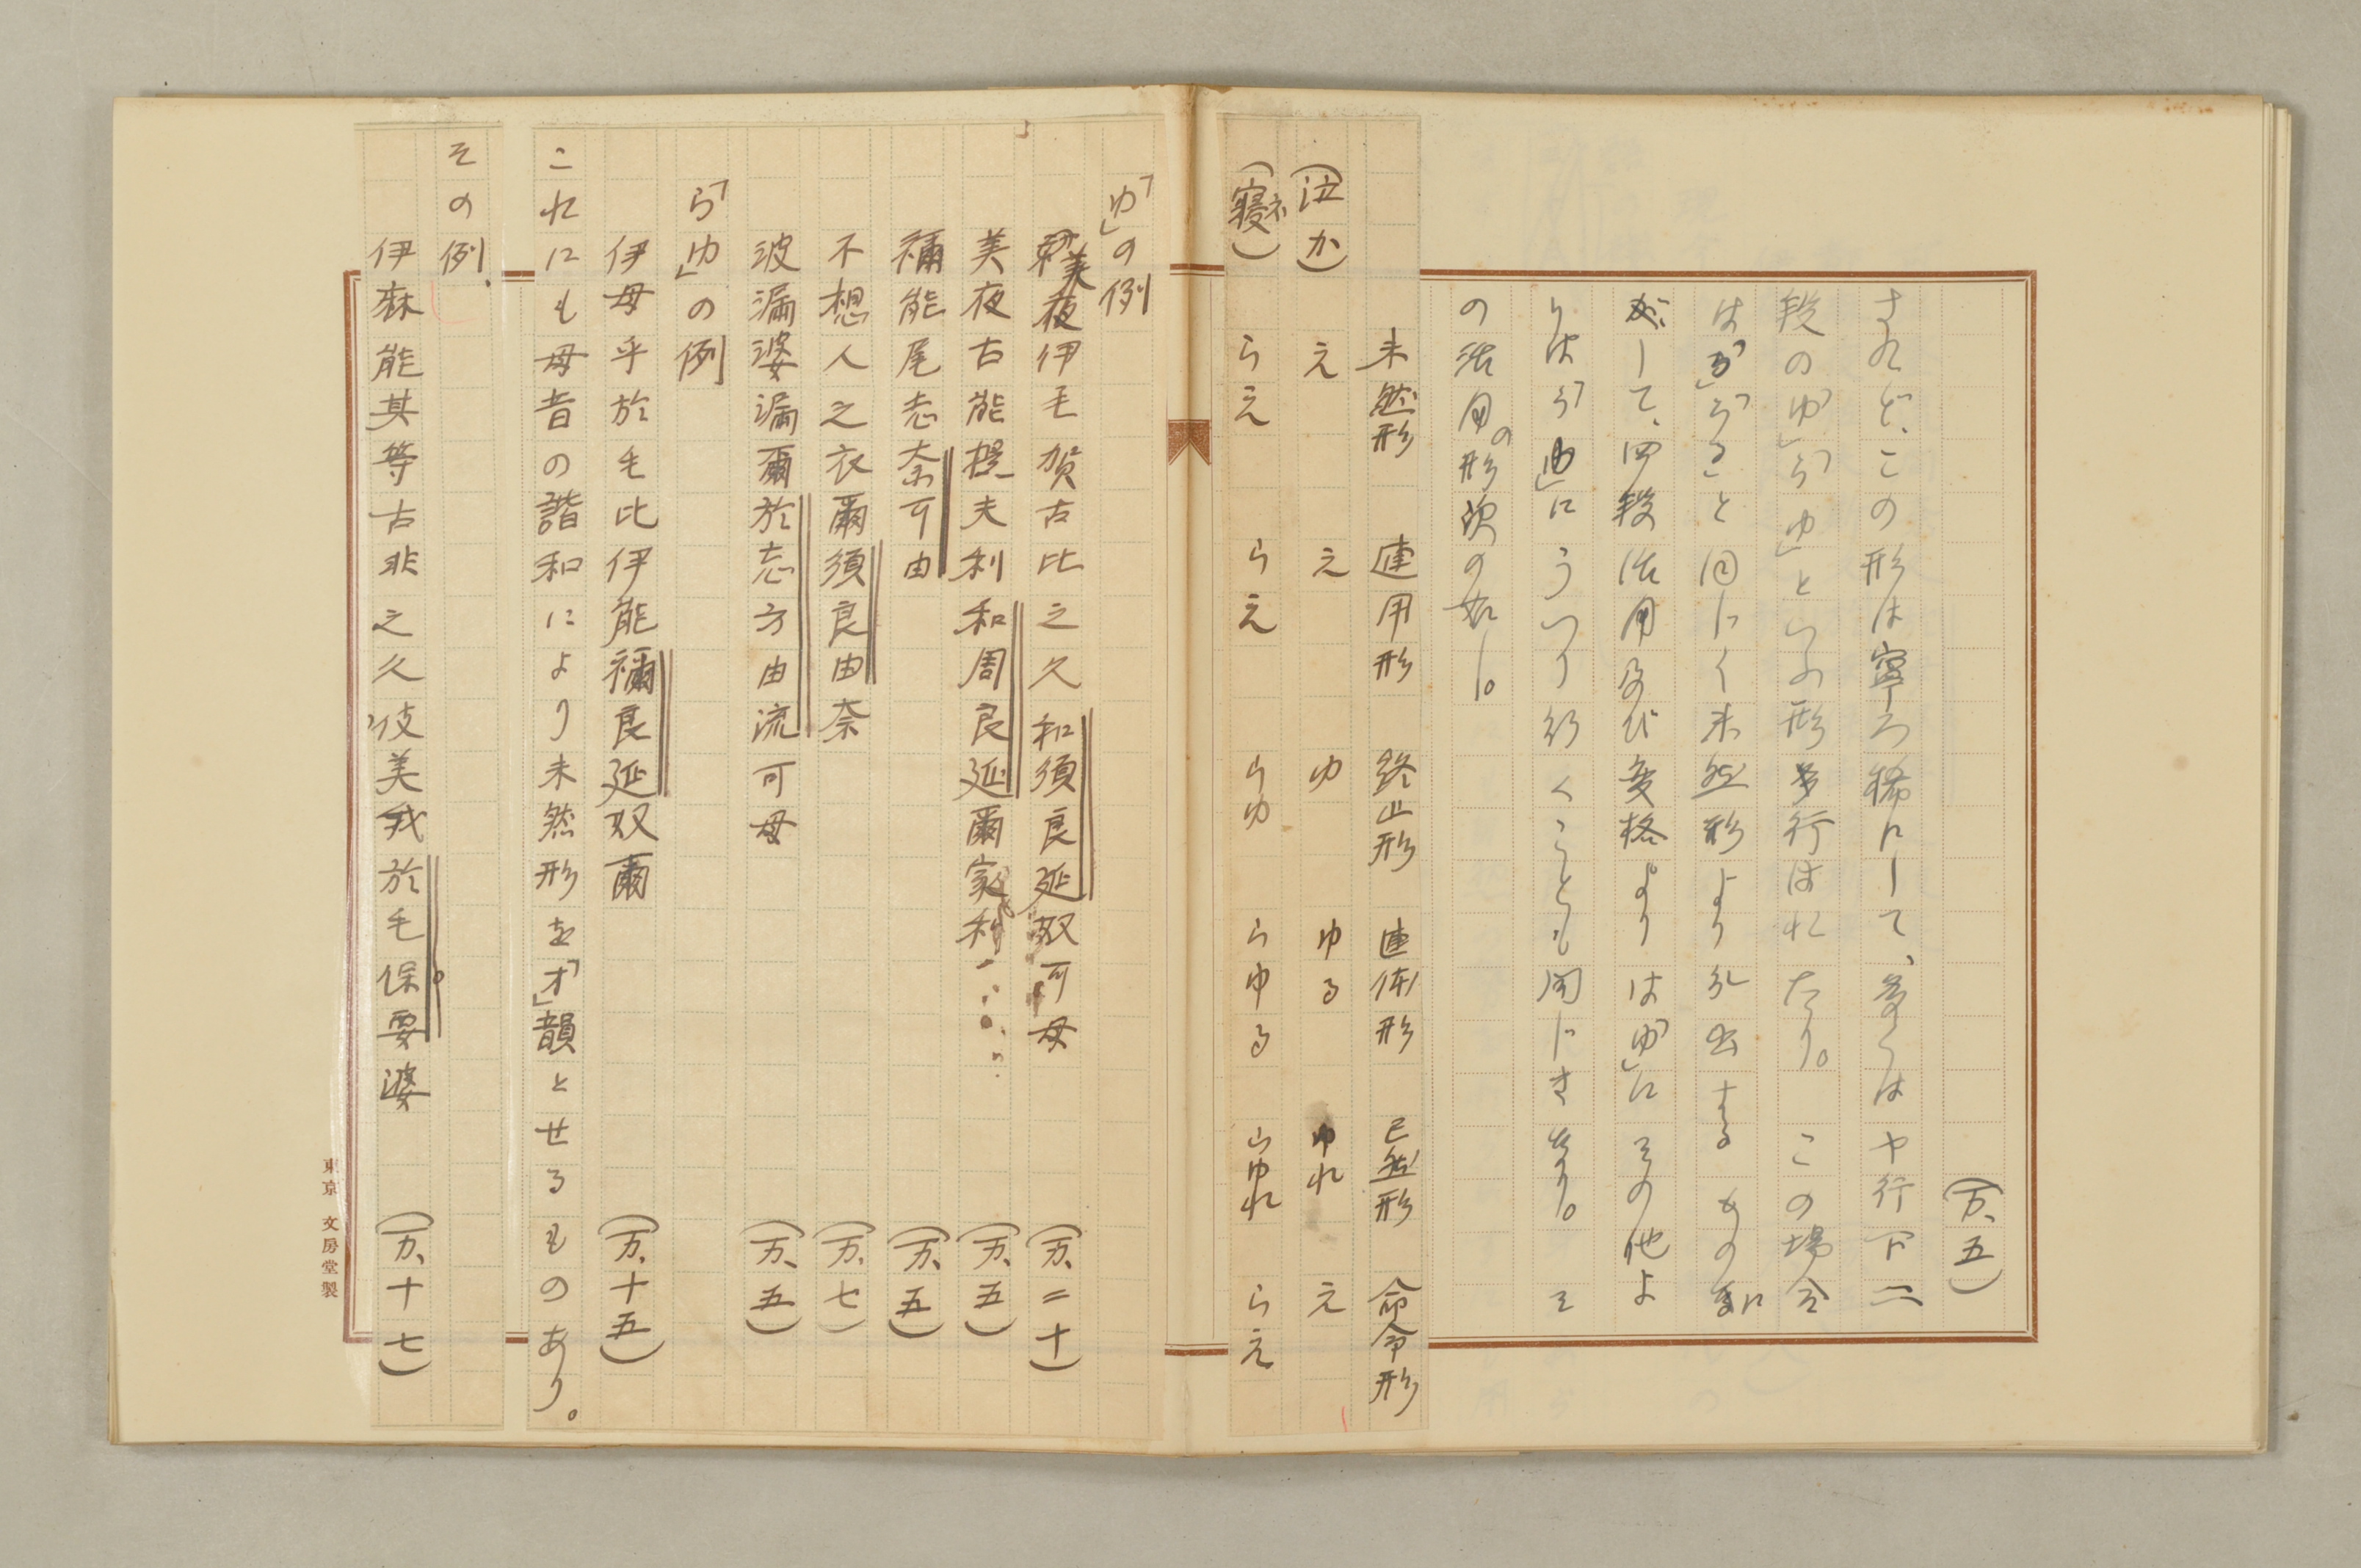 (万、五)
されど、この形は寧ろ稀にして、多くはや行下二
段の「ゆ」「らゆ」といふ形多行はれたり。この場合
は「る」「らる」と同じく未然形より分出するもの
にして、四段活用及び変格よりは「ゆ」にその他よ
りは「らゆ」にうつり行くことも同じさまなり。そ
の活用の形次の如し。
未然形 連用形 終止形 連体形 已然形 命令形
(泣か) え え ゆ ゆる ゆれ え
(寝ネ) らえ らえ らゆ らゆる らゆれ らえ
「ゆ」の例
美夜伊毛賀古比之久和須良延奴可母 (万、二十)
美夜古能提夫利和周良延爾家利…… (万、五)
禰能尾志奈可由 (万、五)
不想人之衣爾須良由奈 (万、七)
波漏婆漏爾於志方由流可母 (万、五)
「らゆ」の例
伊母乎於毛比伊能禰良延奴爾 (万、十五)
これにも母音の諧和により未然形を「オ」韻とせるものあり。
その例、
伊麻能其等古非之久伎美我於毛保要婆 (万、十七)
東京 文房堂製